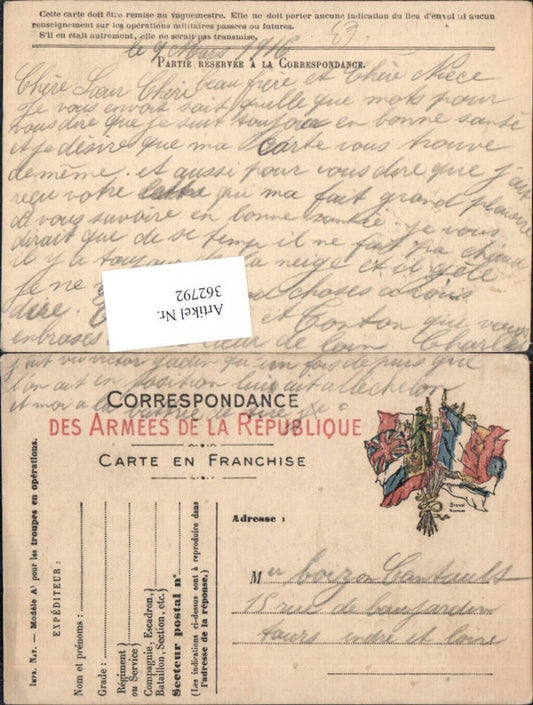 Cette carte doit être remise au vaguemestre. Elle ne doit porter aucune indication du lieu d'envoi ni aucun
renseignement sur les opérations militaires passées ou futures.
S'il en était autrement, elle ne serait pas transmise.
le 9 Mars 1916
PARTIE RÉSERVÉE A LA CORRESPONDANCE.
Chère Sœur Cher beau frère et Chère Nièce
Je vous envoit sait quelle que mots pour
vous dire que je suit toujour en bonne santé
et je désire que ma carte vous trouve
de même. et aussi pour vous dire que j'ait
reçu votre lettre qui ma fait grand plaisire
de vous savoire en bonne santée je vous
dirait que de se temp il ne fait pa chaud
il y a toujour de la neige et il gèle
Je ne choses a vous
dire. et Tonton que vous
enbrasse cœur de loin Charles
Artikel Nr.
362792
j'ait vu victor qu'un fois depuis que
l'on ait en position lui ait a l'échelon
et moi a la battrie de tire
CORRESPONDANCE
DES ARMÉES DE LA RÉPUBLIQUE
CARTE EN FRANCHISE
Impr. Nat. — Modèle A¹ pour les troupes en opérations.
EXPÉDITEUR :
Nom et prénoms :
Grade :
Régiment
ou Service)
Compagnie, Escadron,
Bataillon, Section, etc.)
Secteur postal n°
(Les indications ci-dessus sont à reproduire dans
l'adresse de la réponse.)
Adresse :
M
15 rue de
tours indre et loire